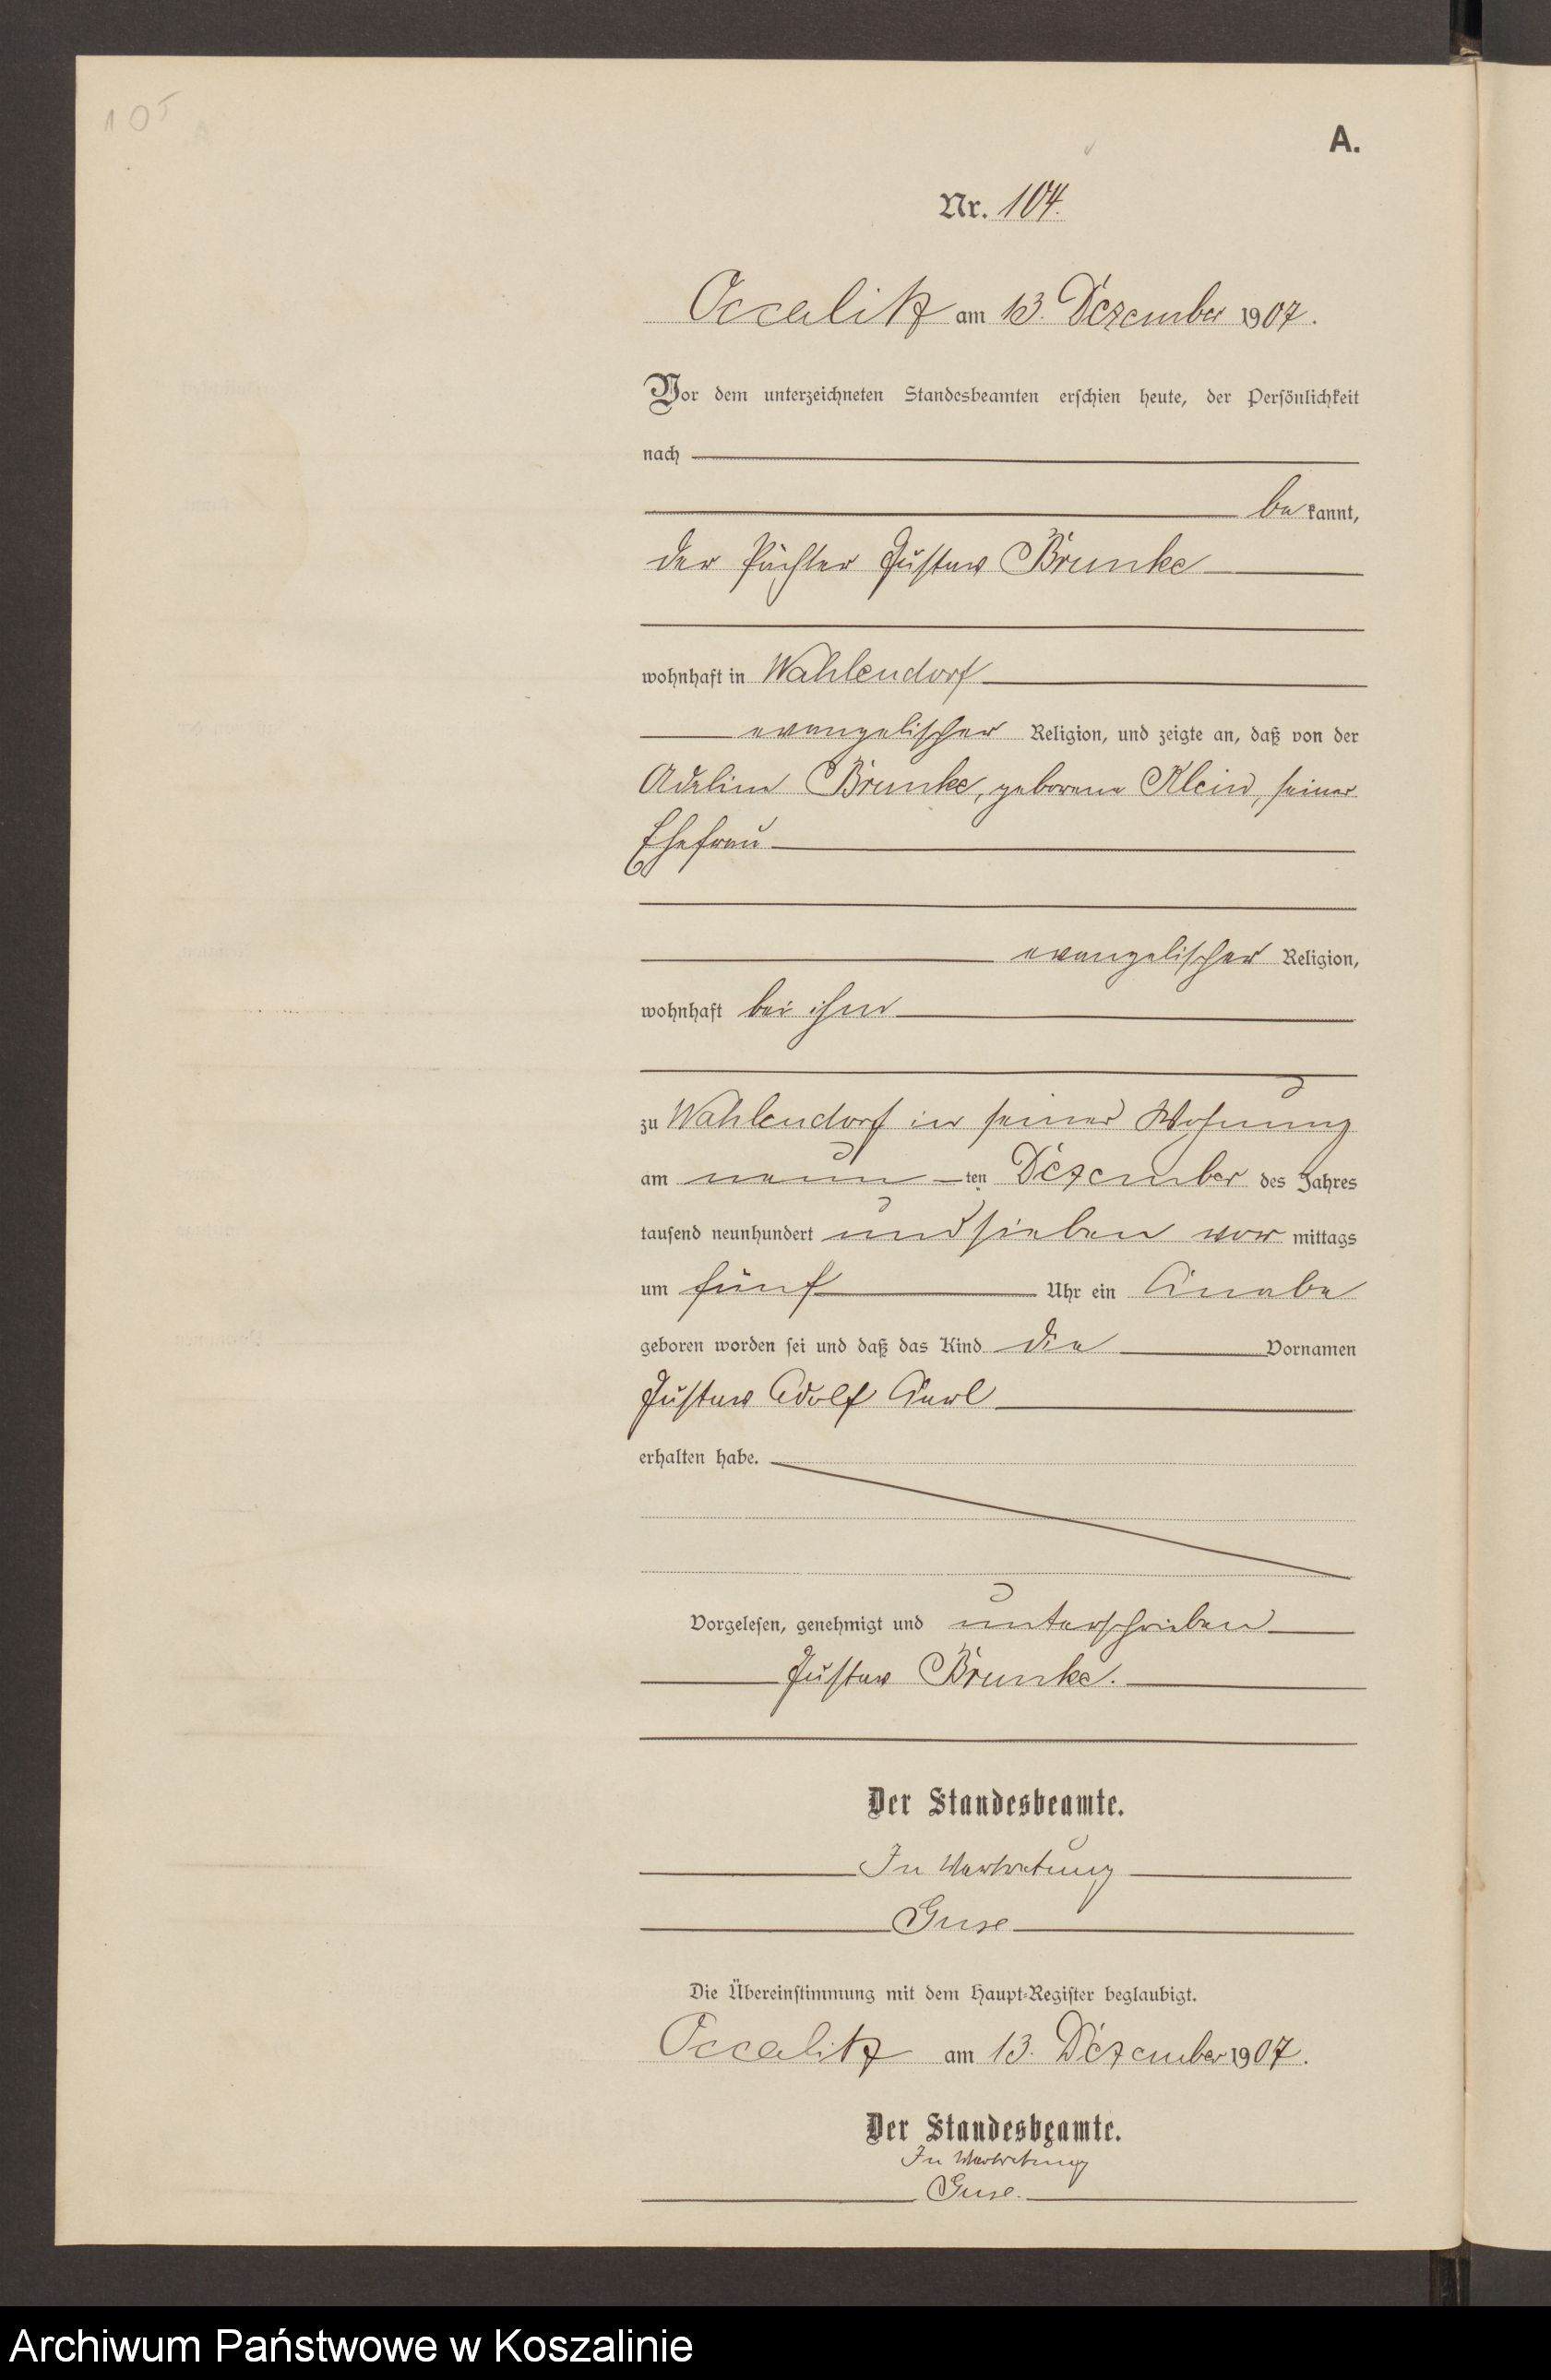 105
A.
Nr. 104.
Occalitz am 13. Dezember 1907.
Vor dem unterzeichneten Standesbeamten erschien heute, der Persönlichkeit
nach
bekannt,
der Pächter Gustav Brunke
wohnhaft in Wahlendorf
evangelischer Religion, und zeigte an, daß von der
Adeline Brunke, geborene Klein, seiner
Ehefrau
evangelischer Religion,
wohnhaft bei ihm
zu Wahlendorf in seiner Wohnung
am neunten Dezember des Jahres
tausend neunhundert und sieben vormittags
um fünf Uhr ein Knabe
geboren worden sei und daß das Kind die Vornamen
Gustav Adolf Karl
erhalten habe.
Vorgelesen, genehmigt und unterschrieben
Gustav Brunke.
Der Standesbeamte.
In Vertretung
Guse
Die Übereinstimmung mit dem Haupt-Register beglaubigt.
Occalitz am 13. Dezember 1907.
Der Standesbeamte.
In Vertretung
Guse.
Archiwum Państwowe w Koszalinie